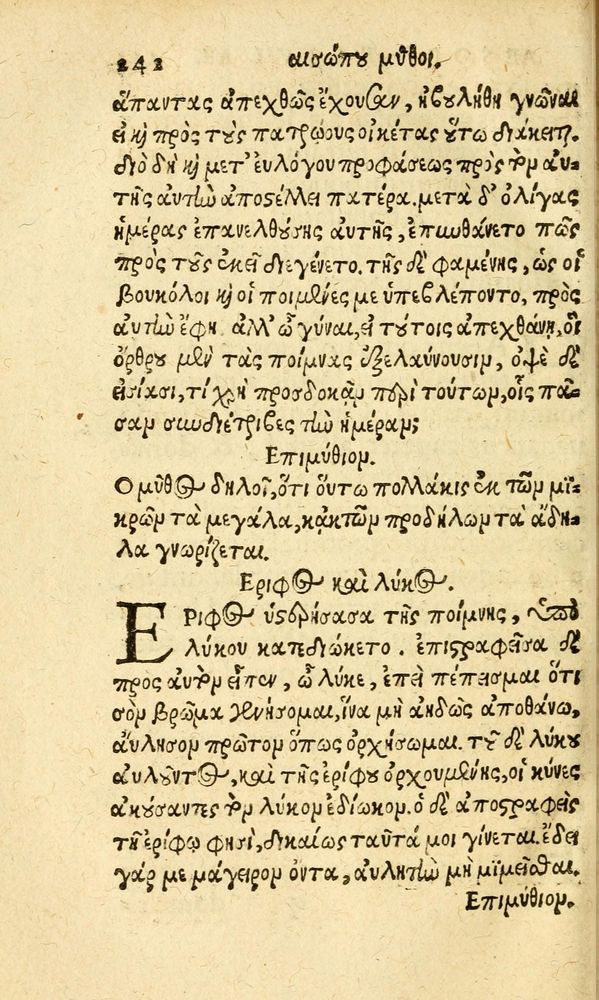 242 αισώπου μῦθοι.
ἅπαντας ἀπεχθῶς ἔχουσαν, ἠβουλήθη γνῶναι
εἰ καὶ πρὸς τοὺς πατρῴους οἰκέτας οὕτω διάκειται.
διὸ δὴ καὶ μετ' εὐλόγου προφάσεως πρὸς τὸν αὐ-
τῆς αὐτὴν ἀποστέλλει πατέρα. μετὰ δ' ὀλίγας
ἡμέρας ἐπανελθούσης αὐτῆς, ἐπυνθάνετο πῶς
πρὸς τοὺς ἐκεῖ διεγένετο. τῆς δὲ φαμένης, ὡς οἱ
βουκόλοι καὶ οἱ ποιμένες με ὑπεβλέποντο, πρὸς
αὐτὴν ἔφη. ἀλλ' ὦ γύναι, εἰ τούτοις ἀπεχθάνῃ, οἳ
ὄρθρου μὲν τὰς ποίμνας ἐξελαύνουσιν, ὀψὲ δὲ
εἰσίασι, τί χρὴ προσδοκᾷν περὶ τούτων, οἷς πᾶ-
σαν συνδιέτριβες τὴν ἡμέραν;
Επιμύθιον.
Ο μῦθος δηλοῖ, ὅτι οὕτω πολλάκις ἐκ τῶν μι-
κρῶν τὰ μεγάλα, κἀκ τῶν προδήλων τὰ ἄδη-
λα γνωρίζεται.
Εριφος καὶ λύκος.
ΕΡΙΦος ὑστερήσασα τῆς ποίμνης, ὑπὸ
λύκου κατεδιώκετο. ἐπιστραφεῖσα δὲ
πρὸς αὐτὸν εἶπεν, ὦ λύκε, ἐπεὶ πέπεισμαι ὅτι
σὸν βρῶμα γενήσομαι, ἵνα μὴ ἀηδῶς ἀποθάνω,
αὔλησον πρῶτον ὅπως ὀρχήσωμαι. τοῦ δὲ λύκου
αὐλοῦντος, καὶ τῆς ἐρίφου ὀρχουμένης, οἱ κύνες
ἀκούσαντες τὸν λύκον ἐδίωκον. ὁ δὲ ἀποστραφεὶς
τῇ ἐρίφῳ φησὶ, δικαίως ταῦτά μοι γίνεται. ἔδει
γάρ με μάγειρον ὄντα, αὐλητὴν μὴ μιμεῖσθαι.
Επιμύθιον.